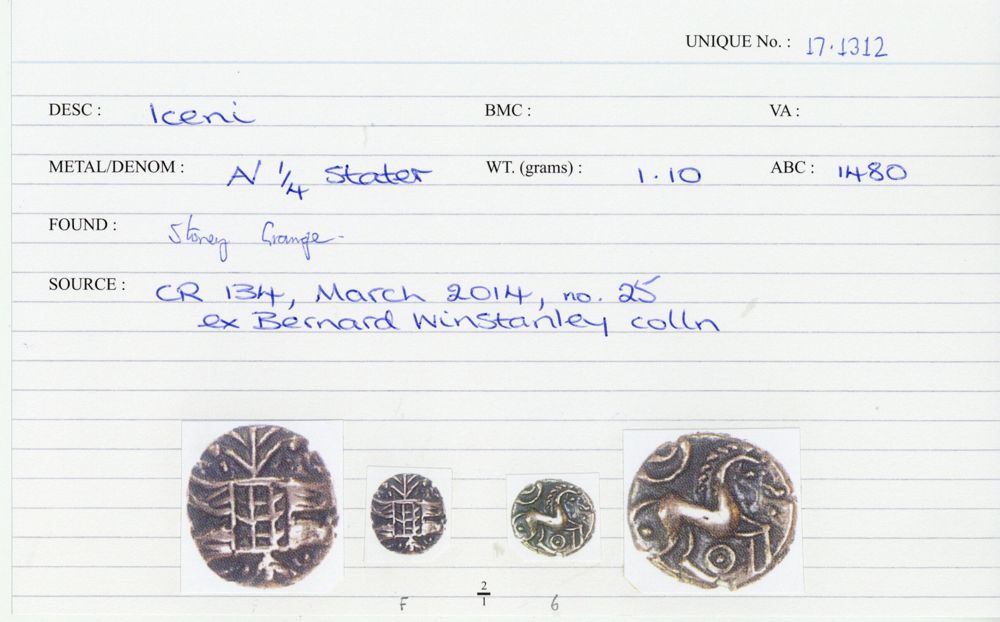 UNIQUE No. : 17.1312
DESC : Iceni BMC : VA :
METAL/DENOM : A/ 1/4 stater WT. (grams) : 1.10 ABC : 1480
FOUND : Stoney Grange.
SOURCE : CR 134, March 2014, no. 25
ex Bernard Winstanley colln
F 2/1 6